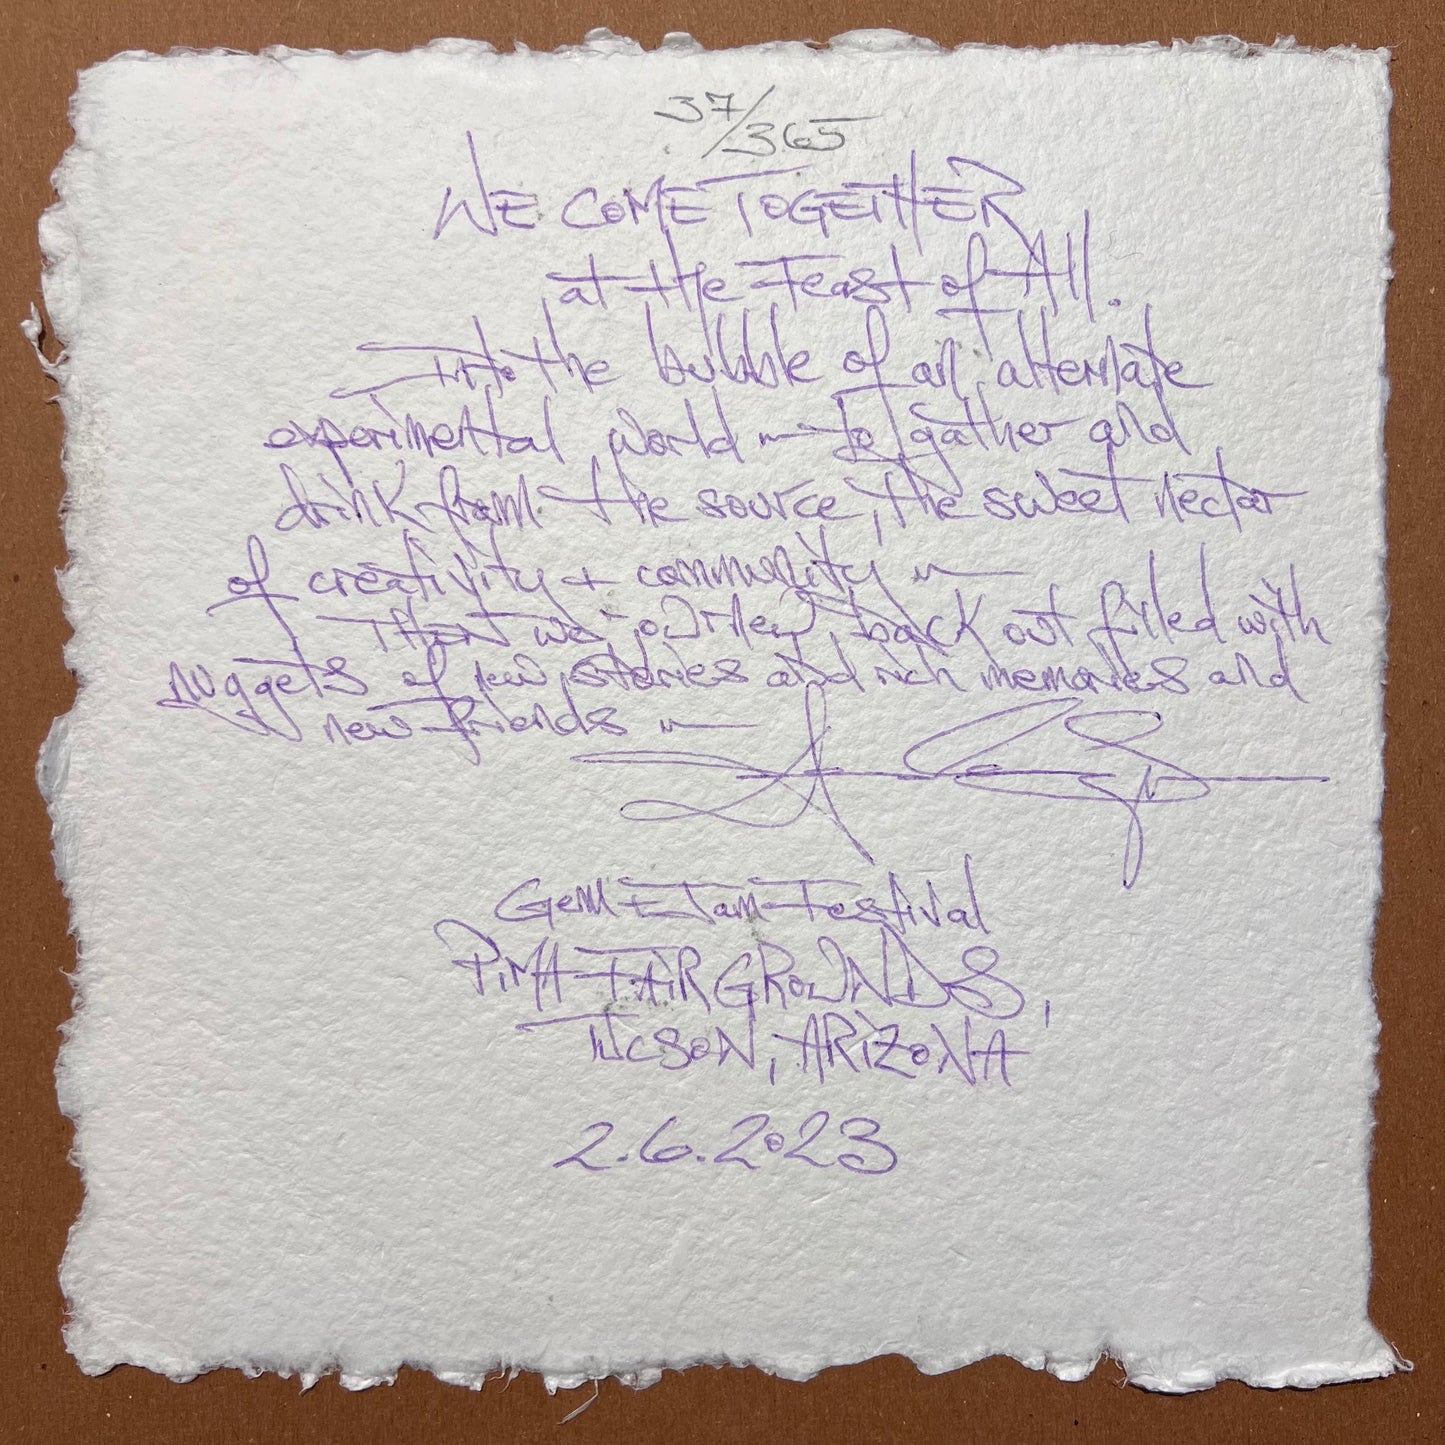 37/365
WE COME TOGETHER
at the Feast of All.
into the bubble of an alternate
experimental world — to gather and
drink from the source, the sweet nectar
of creativity + community —
Then we journey back out filled with
nuggets of new stories and rich memories and
new friends —
Gem & Jam Festival
PIMA FAIRGROUNDS,
TUCSON, ARIZONA
2.6.2023